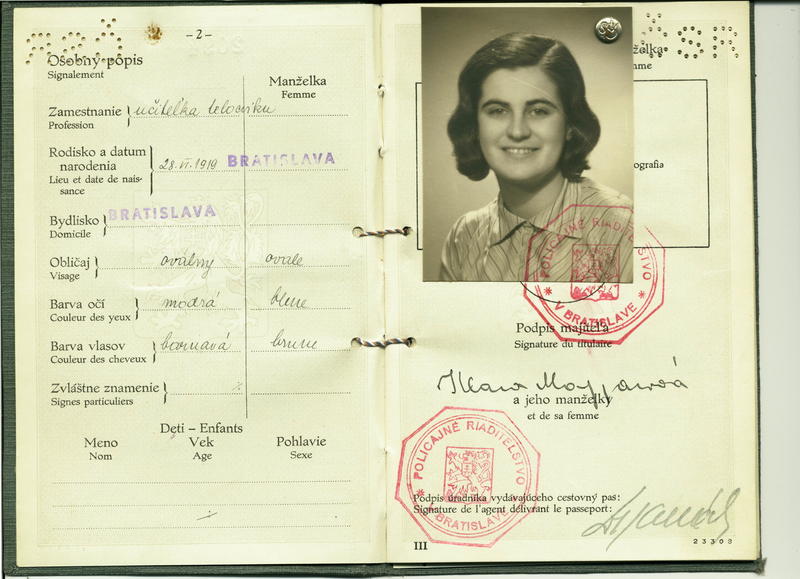 –2–
Osobný popis
Signalement
Manželka
Femme
Zamestnanie
Profession
učitelka telocviku
Rodisko a datum
narodenia
Lieu et date de nais-
sance
28. VI. 1919 BRATISLAVA
Bydlisko
Domicile
BRATISLAVA
Obličaj
Visage
oválny ovale
Barva očí
Couleur des yeux
modrá bleue
Barva vlasov
Couleur des cheveux
brune
Zvláštne znamenie
Signes particuliers
Deti – Enfants
Meno Vek Pohlavie
Nom Age Sexe
ČSR
POLICAJNÉ RIADITEĽSTVO
V BRATISLAVE
Podpis majiteľa
Signature du titulaire
a jeho manželky
et de sa femme
POLICAJNÉ RIADITEĽSTVO
V BRATISLAVE
Podpis úradníka vydávajúceho cestovný pas:
Signature de l'agent délivrant le passeport:
III
23303